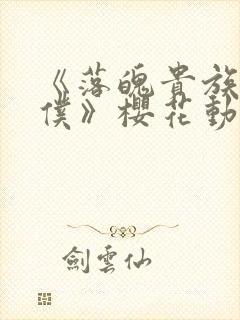 《落魄貴族
僕》櫻花動
劍雲仙